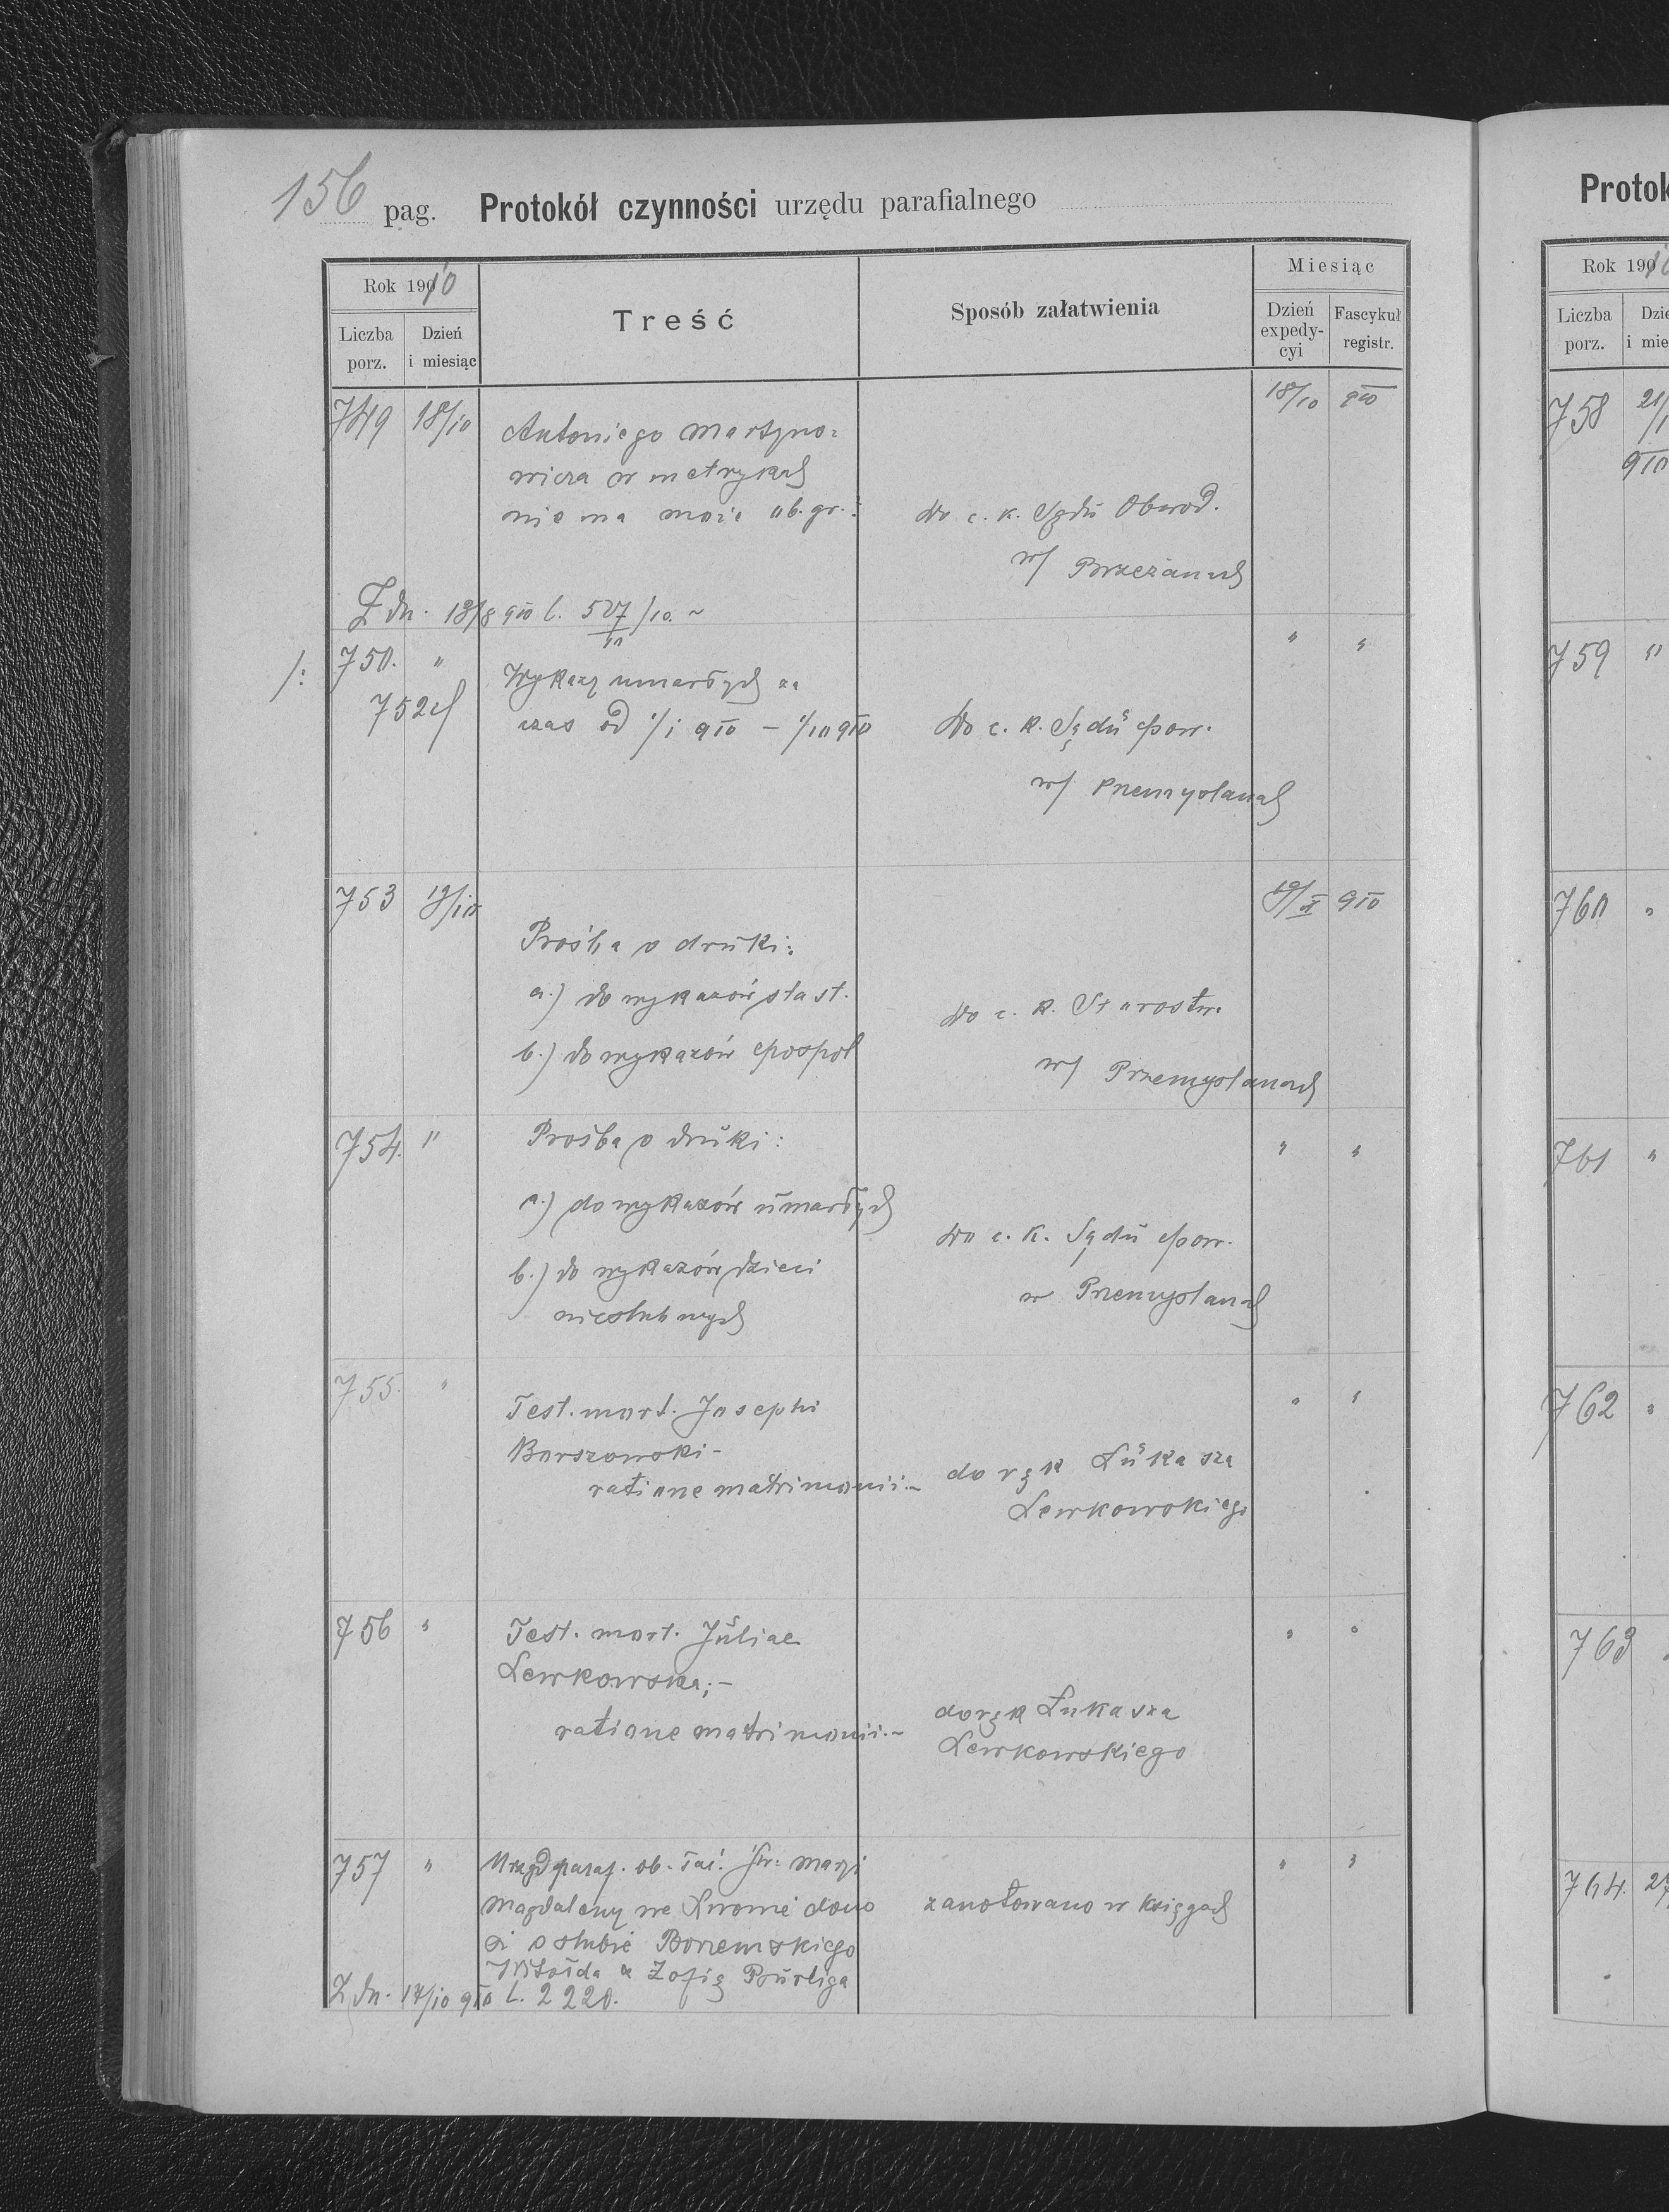 156 pag. Protokół czynności urzędu parafialnego
Rok 1910
Liczba porz.
Dzień i miesiąc
Treść
Sposób załatwienia
Miesiąc
Dzień expedycyi
Fascykuł registr.
749 18/10 Antoniego Martyno=
wicza w metrykach
nie ma może ob. gr.:
do c. k. Sądu Obwod.
w/ Brzeżanach
18/10 910
Z dn. 13/8 910 l. 507/10. ~
/: 750. "
752
Wykazy umarłych za
czas od 1/1 910 – 1/10 910
Do c. k. Sądu pow.
w/ Przemyślanach
" "
753 19/10
Prośba o druki:
a.) do wykazów stast.
b.) do wykazów pospol
do c. k. Starostw.
w/ Przemyślanach
19/X 910
754. "
Prośba o druki:
a.) do wykazów umarłych
b.) do wykazów dzieci
nieślubnych
do c. k. Sądu pow.
w Przemyślanach
" "
755. "
Test. mort. Josephi
Barszowski –
ratione matrimonii. ~
do rąk Łukasza
Lewkowskiego
" "
756 "
Test. mort. Juliae
Lewkowska; –
ratione matrimonii. ~
do rąk Łukasza
Lewkowskiego
" "
757 "
Urząd paraf. ob. łać. św. Maryi
Magdaleny we Lwowie dono
si o ślubie Borzemskiego
Witolda z Zofią
Z dn. 17/10 910 L. 2220.
zanotowano w księgach
" "
Protok
Rok 1910
Liczba porz.
758 21/
910
759 "
760 "
761 "
762 "
763
764. 27